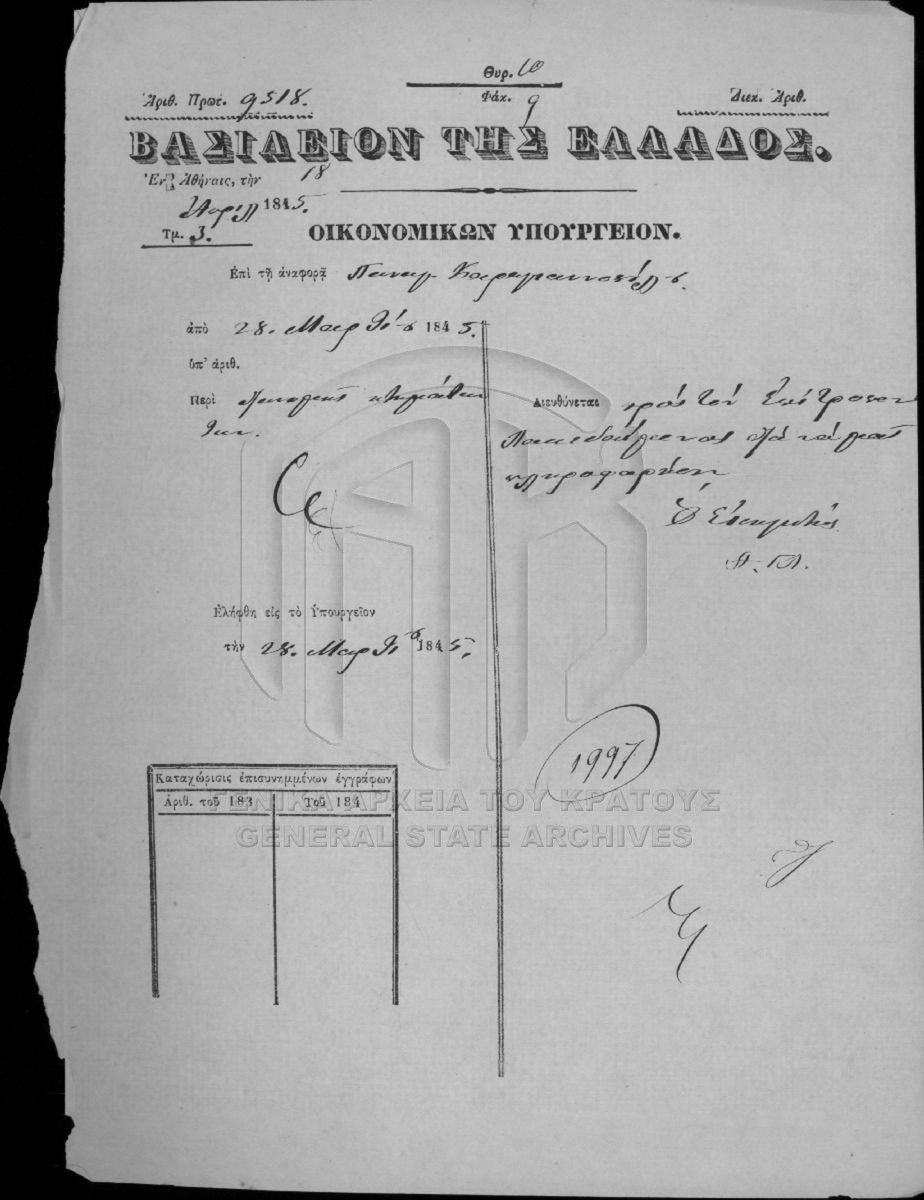 Θυρ. 10
Ἀριθ. Πρωτ. 9518.
Φάκ. 9
Διεκ. Ἀριθ.
ΒΑΣΙΛΕΙΟΝ ΤΗΣ ΕΛΛΑΔΟΣ.
Ἐν Ἀθήναις, τὴν 18
1845.
Τμ. 3.
ΟΙΚΟΝΟΜΙΚΩΝ ΥΠΟΥΡΓΕΙΟΝ.
Ἐπὶ τῇ ἀναφορᾷ
ἀπὸ 28. Μαρτίου 1845.
ὑπ' ἀριθ.
Περὶ κτημάτων
των.
Διευθύνεται πρὸς τὸν Ἐπίτροπον
πληροφορήση
Ἐλήφθη εἰς τὸ Ὑπουργεῖον
τὴν 28. Μαρτίου 1845.
1997
Καταχώρισις ἐπισυνημμένων ἐγγράφων
Ἀριθ. τοῦ 183
Τοῦ 184
ΓΕΝΙΚΑ ΑΡΧΕΙΑ ΤΟΥ ΚΡΑΤΟΥΣ
GENERAL STATE ARCHIVES